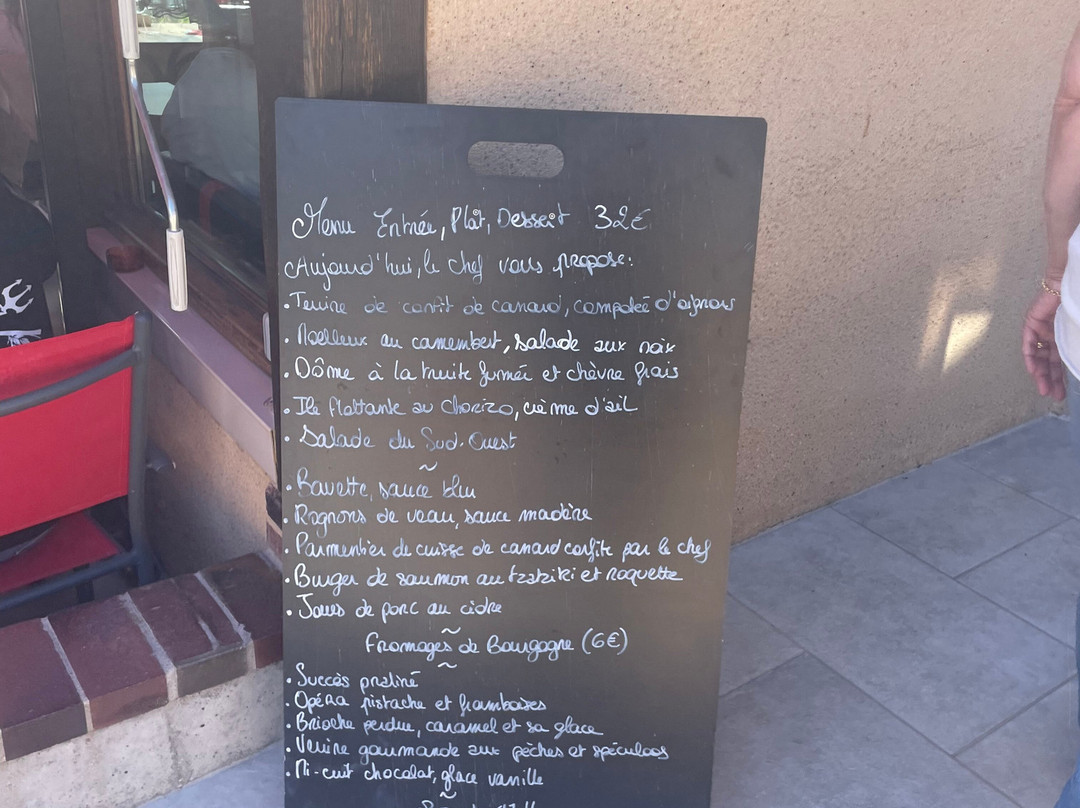 Menu Entrée, Plat, Dessert 32€
Aujourd'hui, le chef vous propose:
• Terrine de confit de canard, compotée d'oignons
• Moelleux au camembert, salade aux noix
• Dôme à la truite fumée et chèvre frais
• Ile flottante au Chorizo, crème d'ail
• Salade du Sud-Ouest
~
• Bavette, sauce bleu
• Rognons de veau, sauce madère
• Parmentier de cuisse de canard confite par le chef
• Burger de saumon au tzatziki et roquette
• Joues de porc au cidre
~
Fromages de Bourgogne (6€)
~
• Succès praliné
• Opéra pistache et framboises
• Brioche perdue, caramel et sa glace
• Verrine gourmande aux pêches et spéculoos
• Mi-cuit chocolat, glace vanille
~